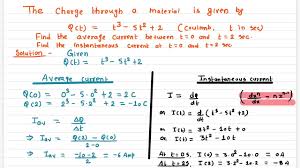 The Charge through a material is given by
Q(t) = t³ - 5t² + 2 (Coulomb, t in sec)
Find the average Current between t=0 and t=2 sec.
Find the instantaneous Current at t=0 and t=2 sec.
Solution - Given
Q(t) = t³ - 5t² + 2
Average current
Q(0) = 0³ - 5·0² + 2 = 2 C
Q(2) = 2³ - 5·2² + 2 = -10 C
I_av = ΔQ/Δt
⇒ I_av = (Q(2) - Q(0))/(2-0)
⇒ I_av = (-10-2)/2 = -6 Amp
Instantaneous current
I = dQ/dt
dxⁿ/dx = nxⁿ⁻¹
or I(t) = d/dt (t³ - 5t² + 2)
or I(t) = 3t² - 10t + 0
or I(t) = 3t² - 10t
I(0) = 3·0² - 10·0 = 0 A
I(2) = 3·2² - 10·2 = -8 A